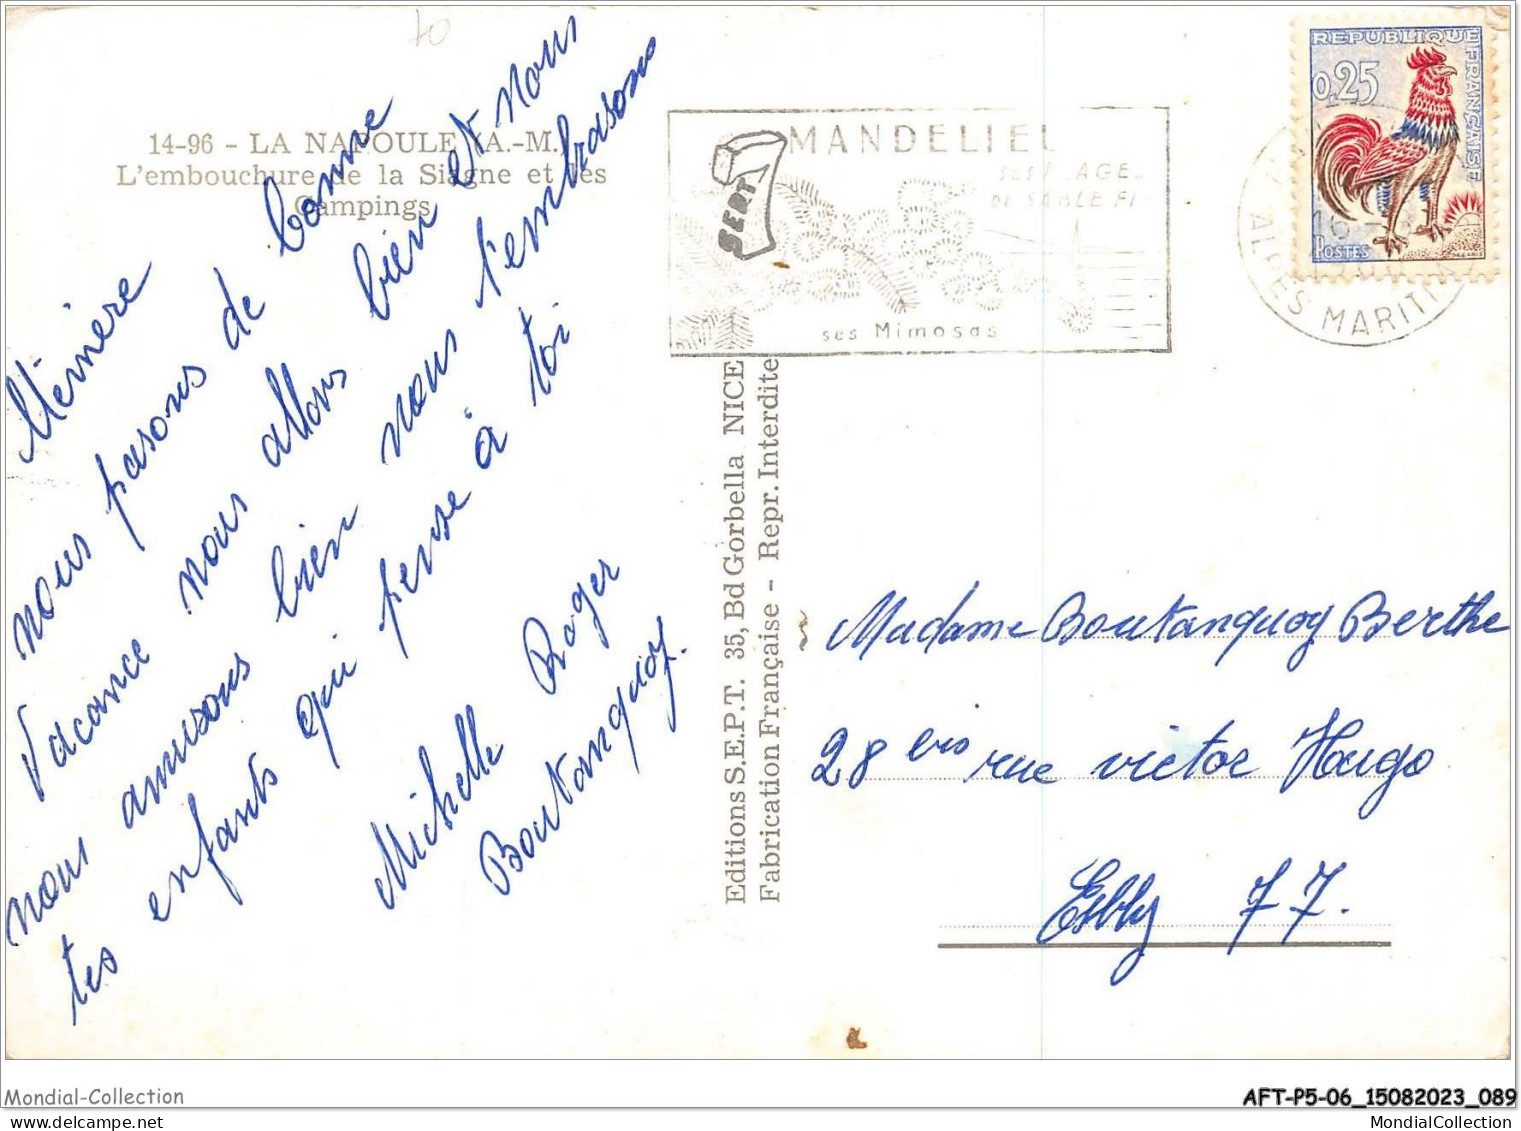 14-96 - LA NAPOULE (A.-M.)
L'embouchure de la Siagne et les
Campings
Mémère
nous pasons de bonne
Vacance nous allons bien et nous
nous amusons bien nous t'embrasons
tes enfants qui pense à toi
Michelle Roger
Boutanquoy.
Editions S.E.P.T. 35, Bd Gorbella NICE
Fabrication Française - Repr. Interdite
SEPT
MANDELIEU
SES PLAGES
DE SABLE FIN
ses Mimosas
REPUBLIQUE FRANÇAISE
0,25
POSTES
DECARIS
ALPES MARITIMES
Madame Boutanquoy Berthe
28 bis rue victor Hugo
Esbly 77.
Mondial-Collection
AFT-P5-06_15082023_089
MondialCollection